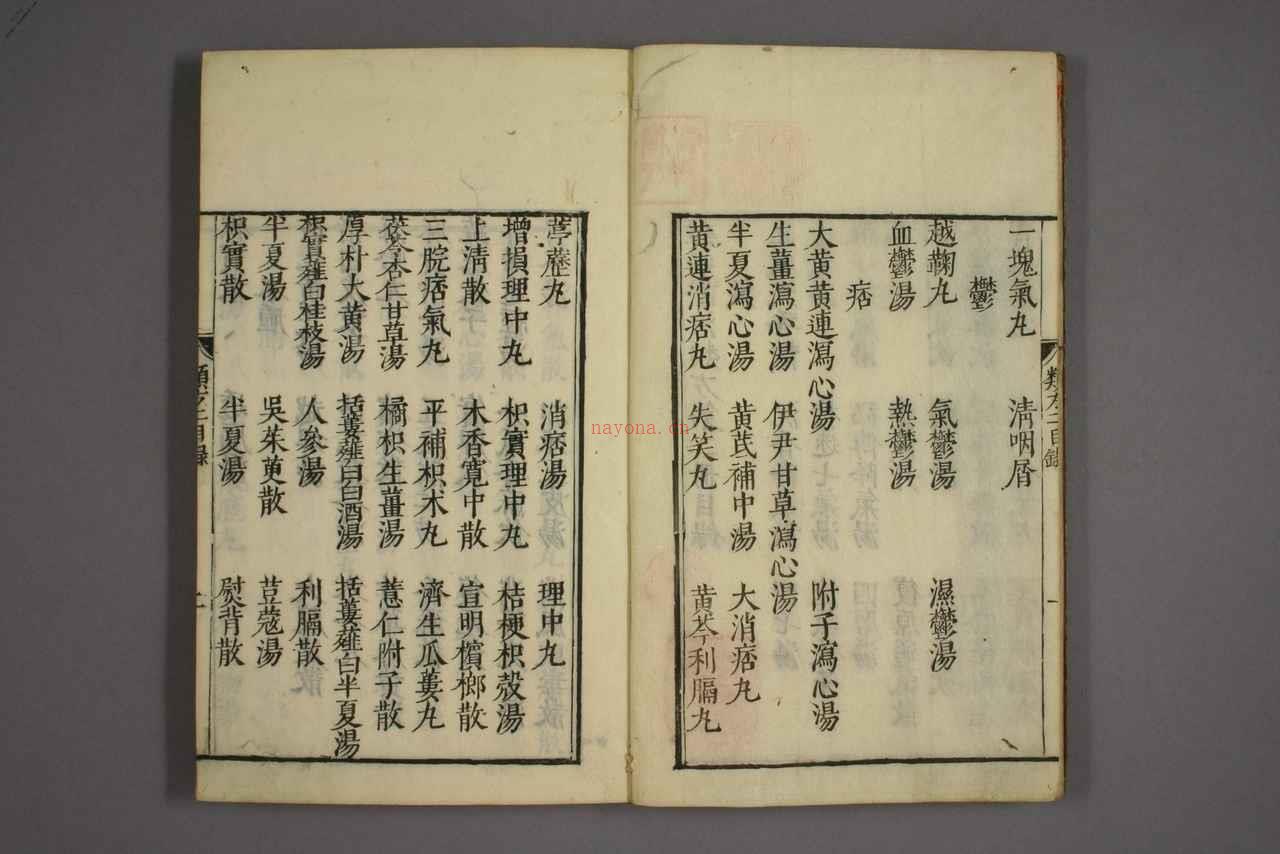 一塊氣丸　清咽屑
鬱
越鞠丸　氣鬱湯　濕鬱湯
血鬱湯　熱鬱湯
痞
大黃黃連瀉心湯　附子瀉心湯
生薑瀉心湯　伊尹甘草瀉心湯
半夏瀉心湯　黃芪補中湯　大消痞丸
黃連消痞丸　失笑丸　黃芩利膈丸
類方二目錄　一
葶藶丸　消痞湯　理中丸
增損理中丸　枳實理中丸　桔梗枳殼湯
上清散　木香寬中散　宣明檳榔散
三脘痞氣丸　平補枳朮丸　濟生瓜蔞丸
茯苓杏仁甘草湯　橘枳生薑湯　薏仁附子散
厚朴大黃湯　括蔞薤白白酒湯　括蔞薤白半夏湯
枳實薤白桂枝湯　人參湯　利膈散
半夏湯　吳茱萸散　荳蔻湯
枳實散　半夏湯　熨背散
類方二目錄　二
nayona.cn